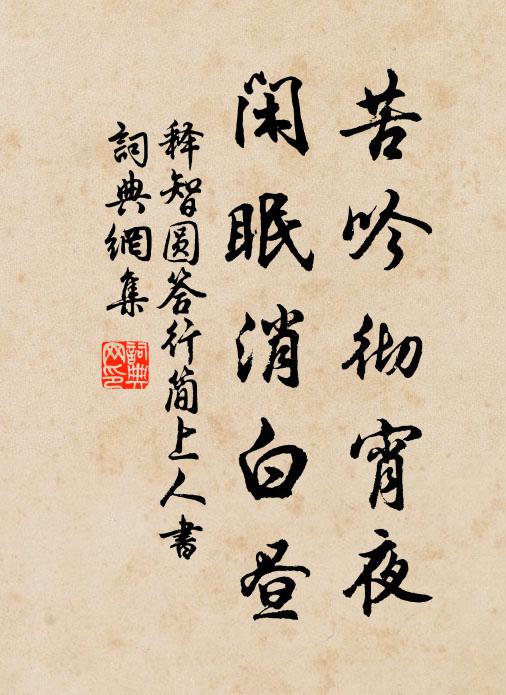 苦吟彻宵夜
闲眠消白昼
释智圆答行简上人书
詞典網集
詞典網印